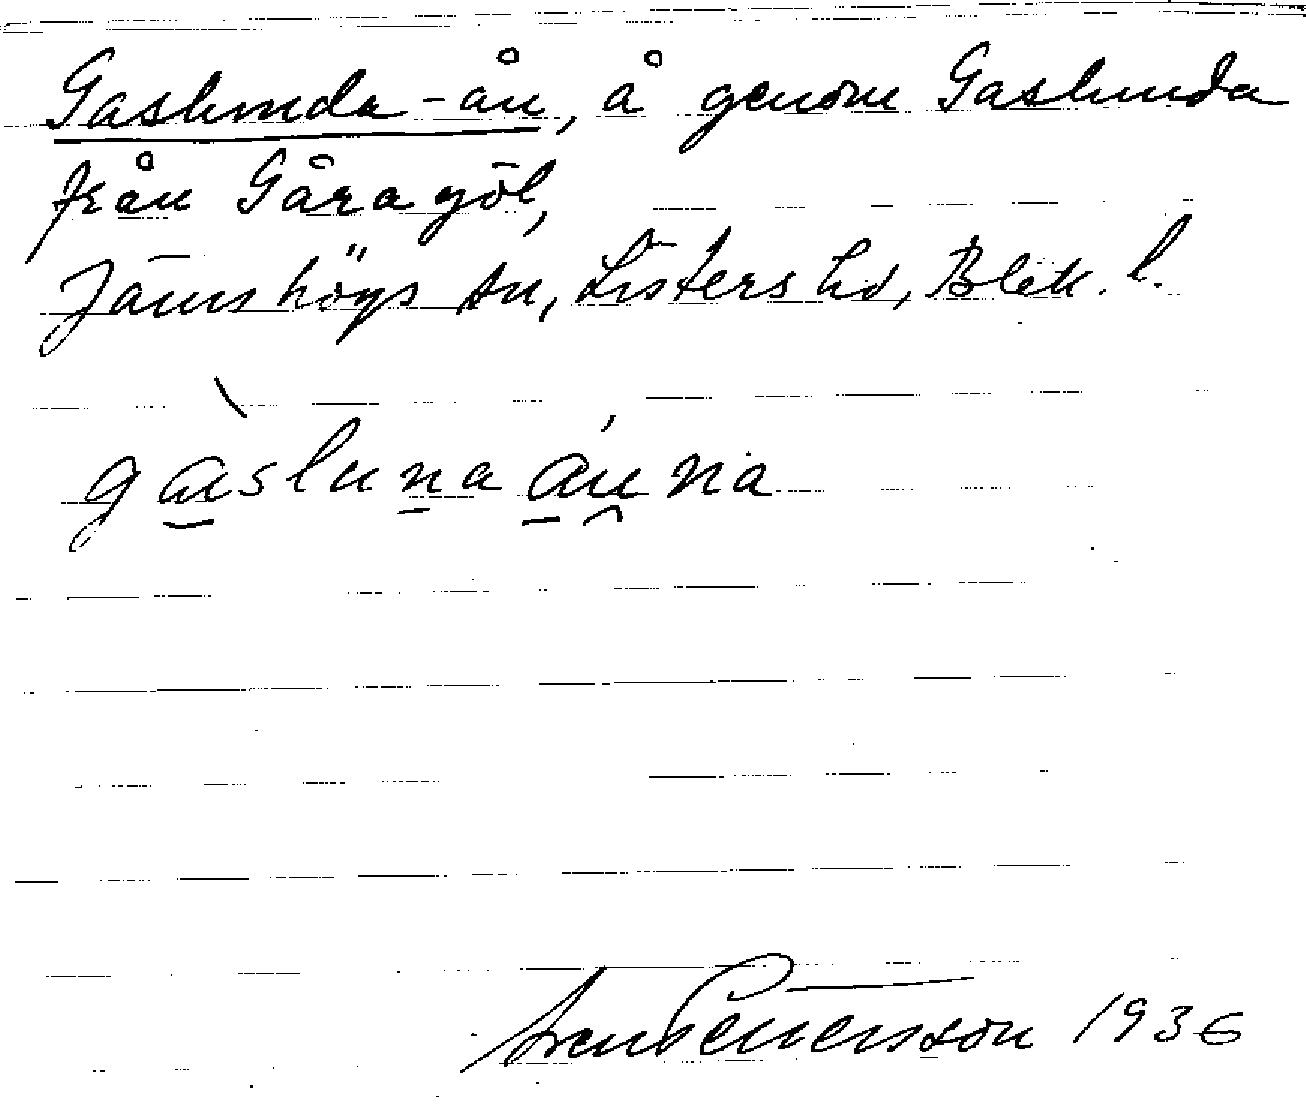 Gaslunda-ån, å genom Gaslunda
från Gåragöl,
Jämshögs sn, Listers hd, Blek. l.
gàslunaáuna
Sven Petersson 1936